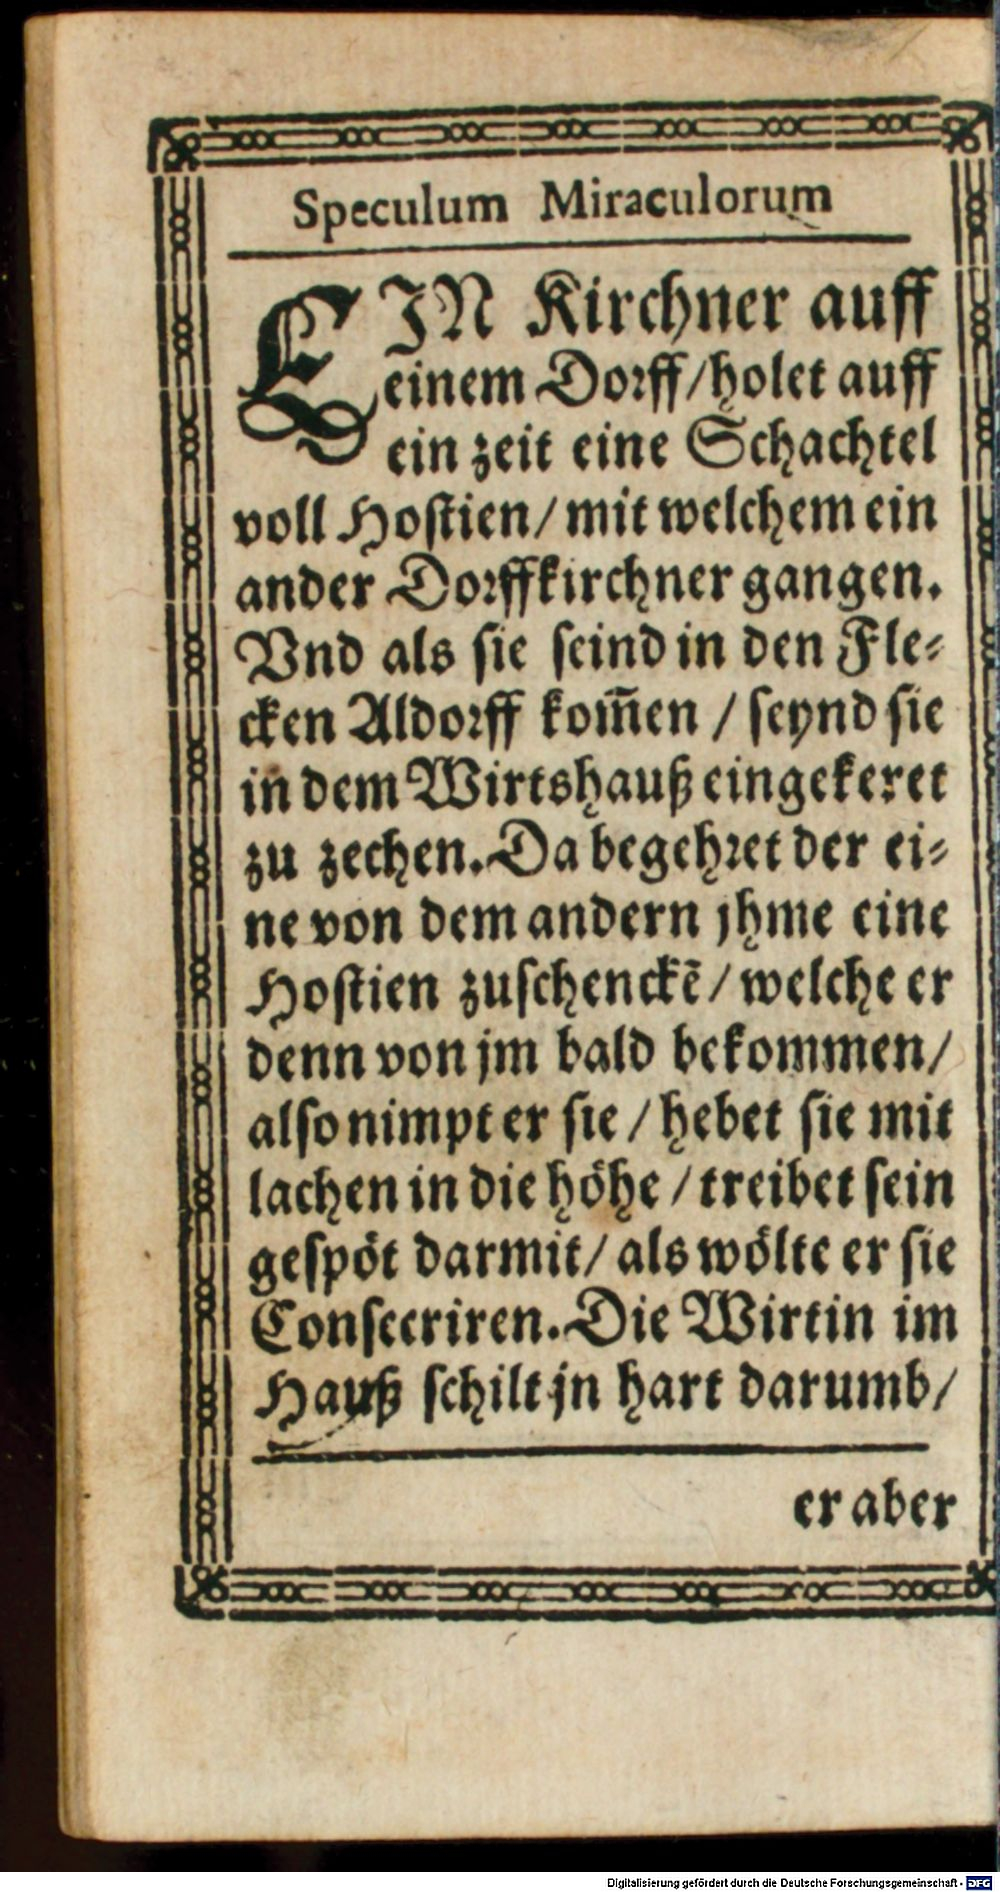 Speculum Miraculorum
EJN Kirchner auff
einem Dorff/holet auff
ein zeit eine Schachtel
voll Hostien/ mit welchem ein
ander Dorffkirchner gangen.
Vnd als sie seind in den Fle-
cken Aldorff kom̃en / seynd sie
in dem Wirtshauß eingekeret
zu zechen. Da begehret der ei-
ne von dem andern jhme eine
Hostien zuschenckē/ welche er
denn von jm bald bekommen/
also nimpt er sie / hebet sie mit
lachen in die höhe / treibet sein
gespöt darmit/ als wölte er sie
Consecriren. Die Wirtin im
Hauß schilt jn hart darumb/
er aber
Digitalisierung gefördert durch die Deutsche Forschungsgemeinschaft - DFG